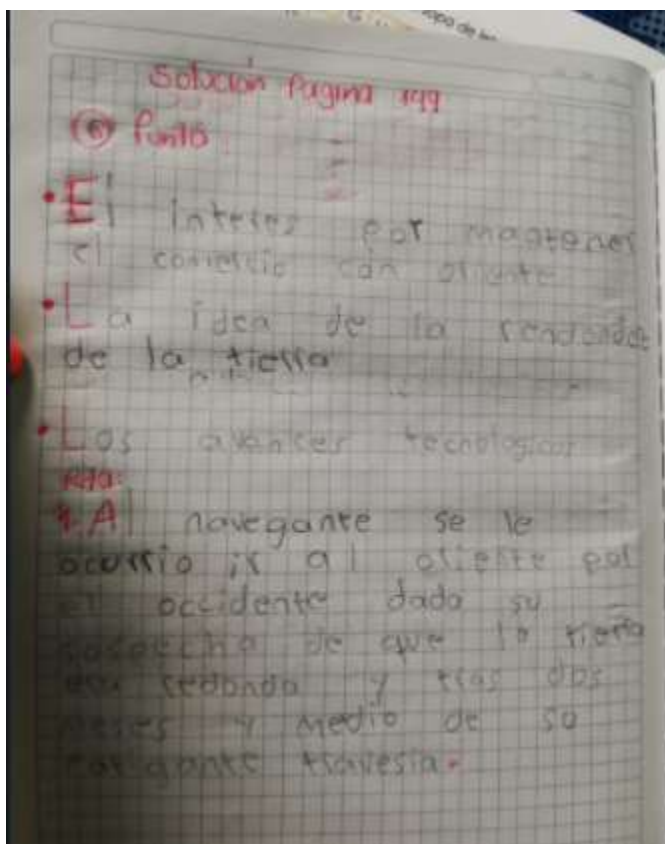 opa de la
Solución Pagina 149
⑥ Punto
• El interes por mantener
el comercio con oriente
• La idea de la rendondes
de la tierra
• Los avances tecnologicos
Rta:
1. Al navegante se le
ocurrio ir al oriente por
el occidente dado su
sospecha de que la tierra
era redonda y tras dos
meses y medio de su
travesia.